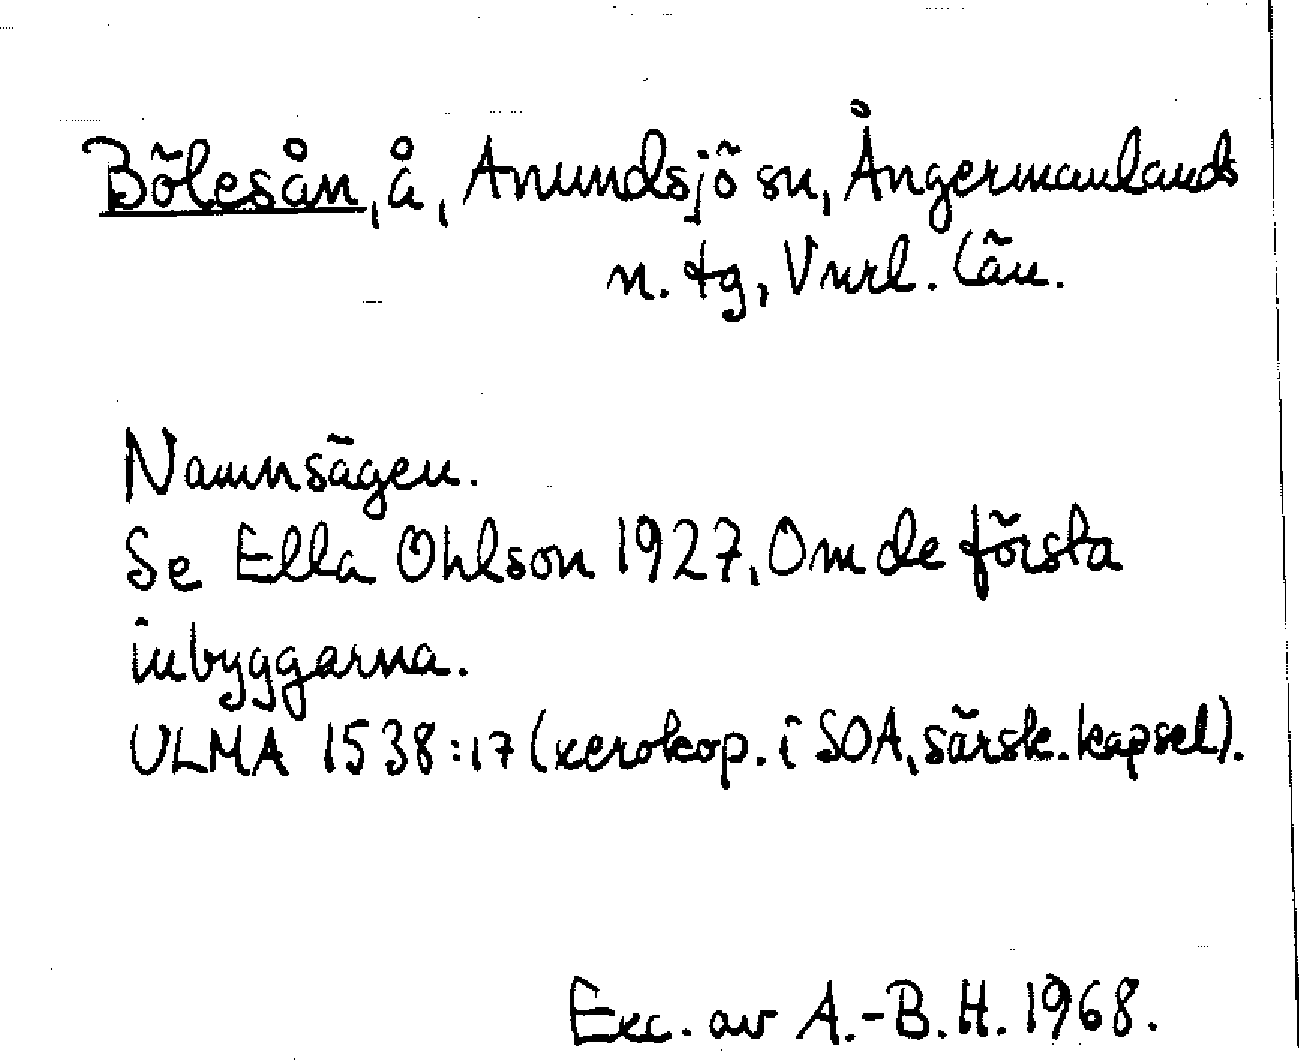 Bölesån, å, Anundsjö sn, Ångermanlands
n. tg, Vnrl. län.
Namnsägen.
Se Ella Ohlson 1927, Om de första
inbyggarna.
ULMA 1538:17 (xerokop. i SOA, särsk. kapsel).
Exc. av A.-B. H. 1968.